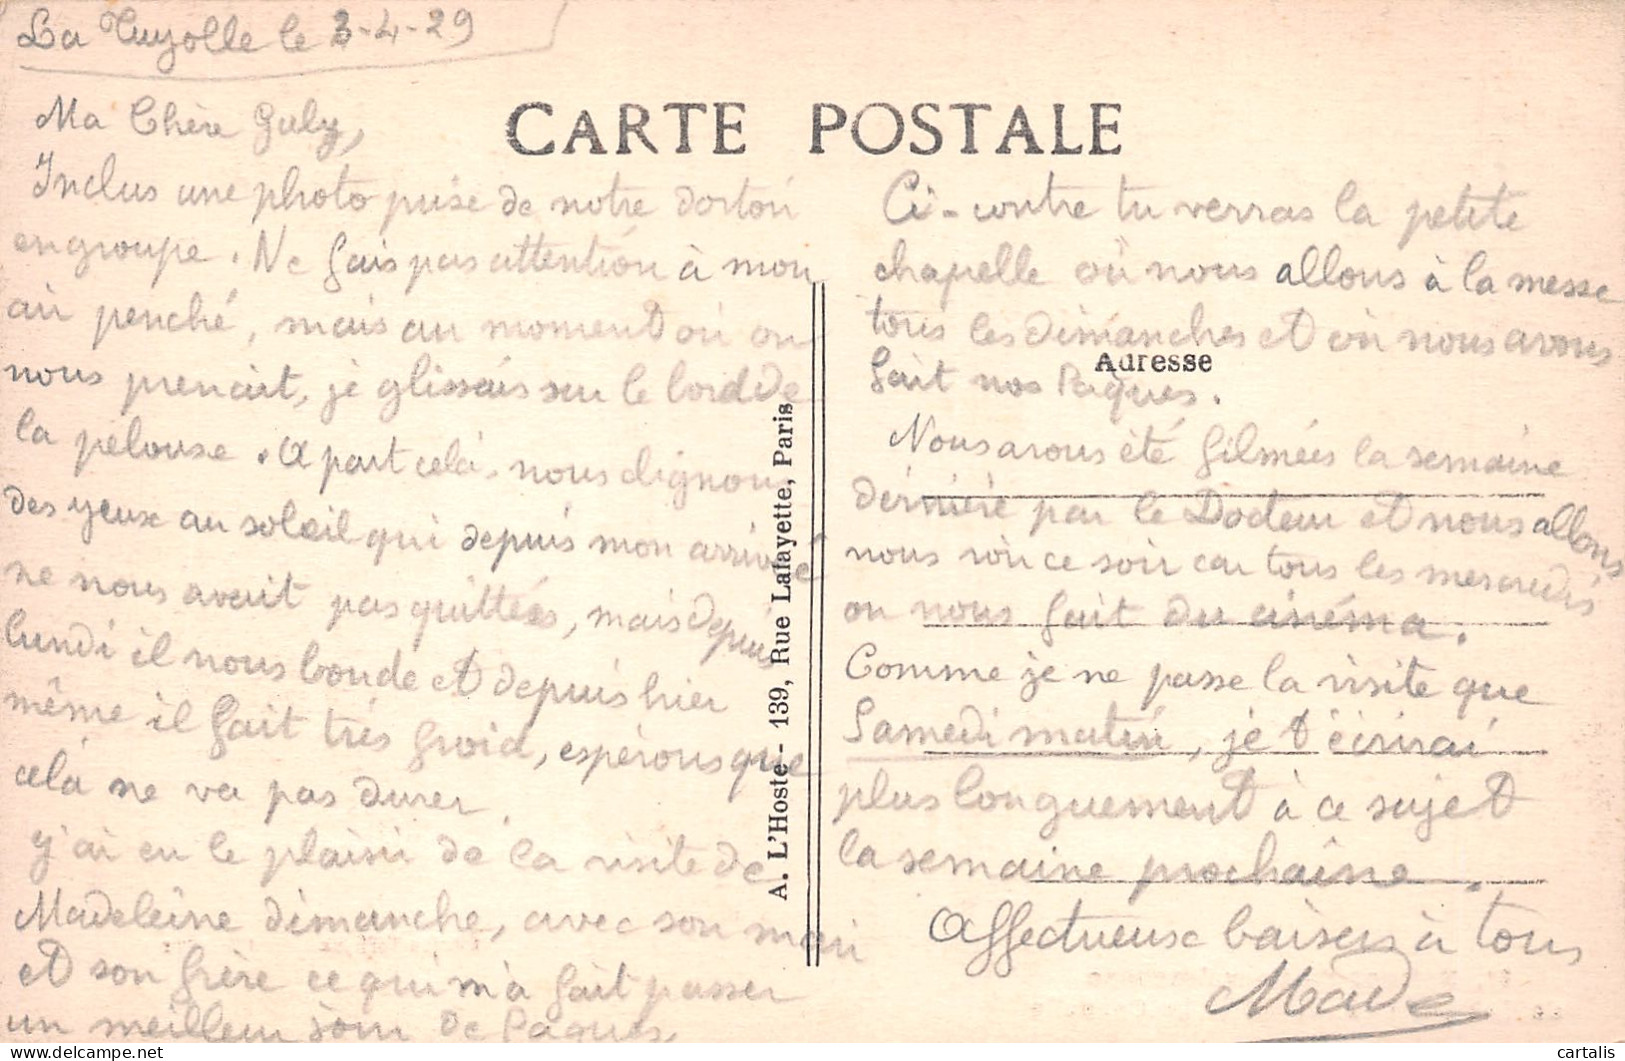 La Tuyolle le 3-4-29
CARTE POSTALE
Ma Chère Guly,
Inclus une photo prise de notre dortoir
en groupe. Ne fais pas attention à mon
air penché, mais au moment où on
nous prenait, je glissais sur le bord de
la pelouse. A part cela, nous clignons
des yeux au soleil qui depuis mon arrivée
ne nous avait pas quittées, mais depuis
lundi il nous boude et depuis hier
même il fait très froid, espérons que
celà ne va pas durer.
J'ai eu le plaisir de la visite de
Madeleine dimanche, avec son mari
et son frère ce qui m'a fait passer
un meilleur jour de Pâques.
A. L'Hoste - 139, Rue Lafayette, Paris
Ci-contre tu verras la petite
chapelle où nous allons à la messe
tous les dimanches et où nous avons
Adresse
fait nos Pâques.
Nous avons été filmées la semaine
dernière par le Docteur et nous allons
nous voir ce soir car tous les mercredis
on nous fait du cinéma.
Comme je ne passe la visite que
Samedi matin, je t'écrirai
plus longuement à ce sujet
la semaine prochaine.
Affectueux baisers à tous
Made
cartalis
delcampe.net